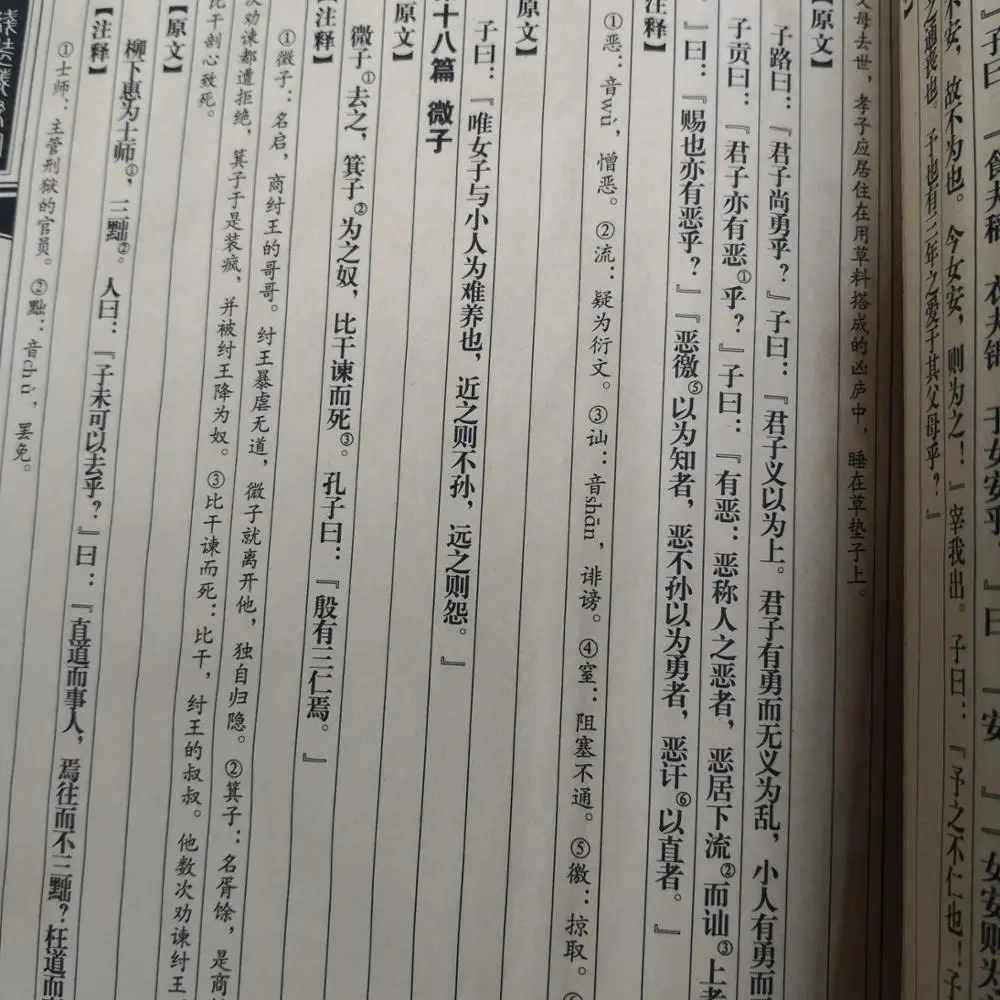 』子曰：『食夫稻，衣夫锦，于女安乎？』曰：『安。』『女安则为
不安，故不为也。今女安，则为之！』宰我出。子曰：『予之不仁也！子
通丧也，予也有三年之爱于其父母乎？』
父母去世，孝子应居住在用草料搭成的凶庐中，睡在草垫子上。
【原文】
子路曰：『君子尚勇乎？』子曰：『君子义以为上。君子有勇而无义为乱，小人有勇而
子贡曰：『君子亦有恶①乎？』子曰：『有恶：恶称人之恶者，恶居下流②而讪③上者
』曰：『赐也亦有恶乎？』『恶徼⑤以为知者，恶不孙以为勇者，恶讦⑥以为直者。』
注释】
①恶：音wù，憎恶。②流：疑为衍文。③讪：音shàn，诽谤。④窒：阻塞不通。⑤徼：掠取。⑥
原文】
子曰：『唯女子与小人为难养也，近之则不孙，远之则怨。』
十八篇 微子
原文】
微子①去之，箕子②为之奴，比干谏而死③。孔子曰：『殷有三仁焉。』
【注释】
①微子：名启，商纣王的哥哥。纣王暴虐无道，微子就离开他，独自归隐。②箕子：名胥馀，是商
次劝谏都遭拒绝，箕子于是装疯，并被纣王降为奴。③比干谏而死：比干，纣王的叔叔。他数次劝谏纣王
比干剖心致死。
【原文】
柳下惠为士师①，三黜②。人曰：『子未可以去乎？』曰：『直道而事人，焉往而不三黜？枉道而
【注释】
①士师：主管刑狱的官员。②黜：音chù，罢免。